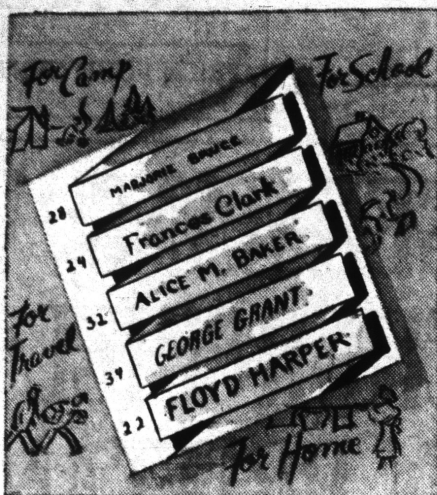 For Camp
For School
28 MARJORIE BOWER
24 Frances Clark
32 ALICE M. BAKER
34 GEORGE GRANT
22 FLOYD HARPER
For
Travel
For Home